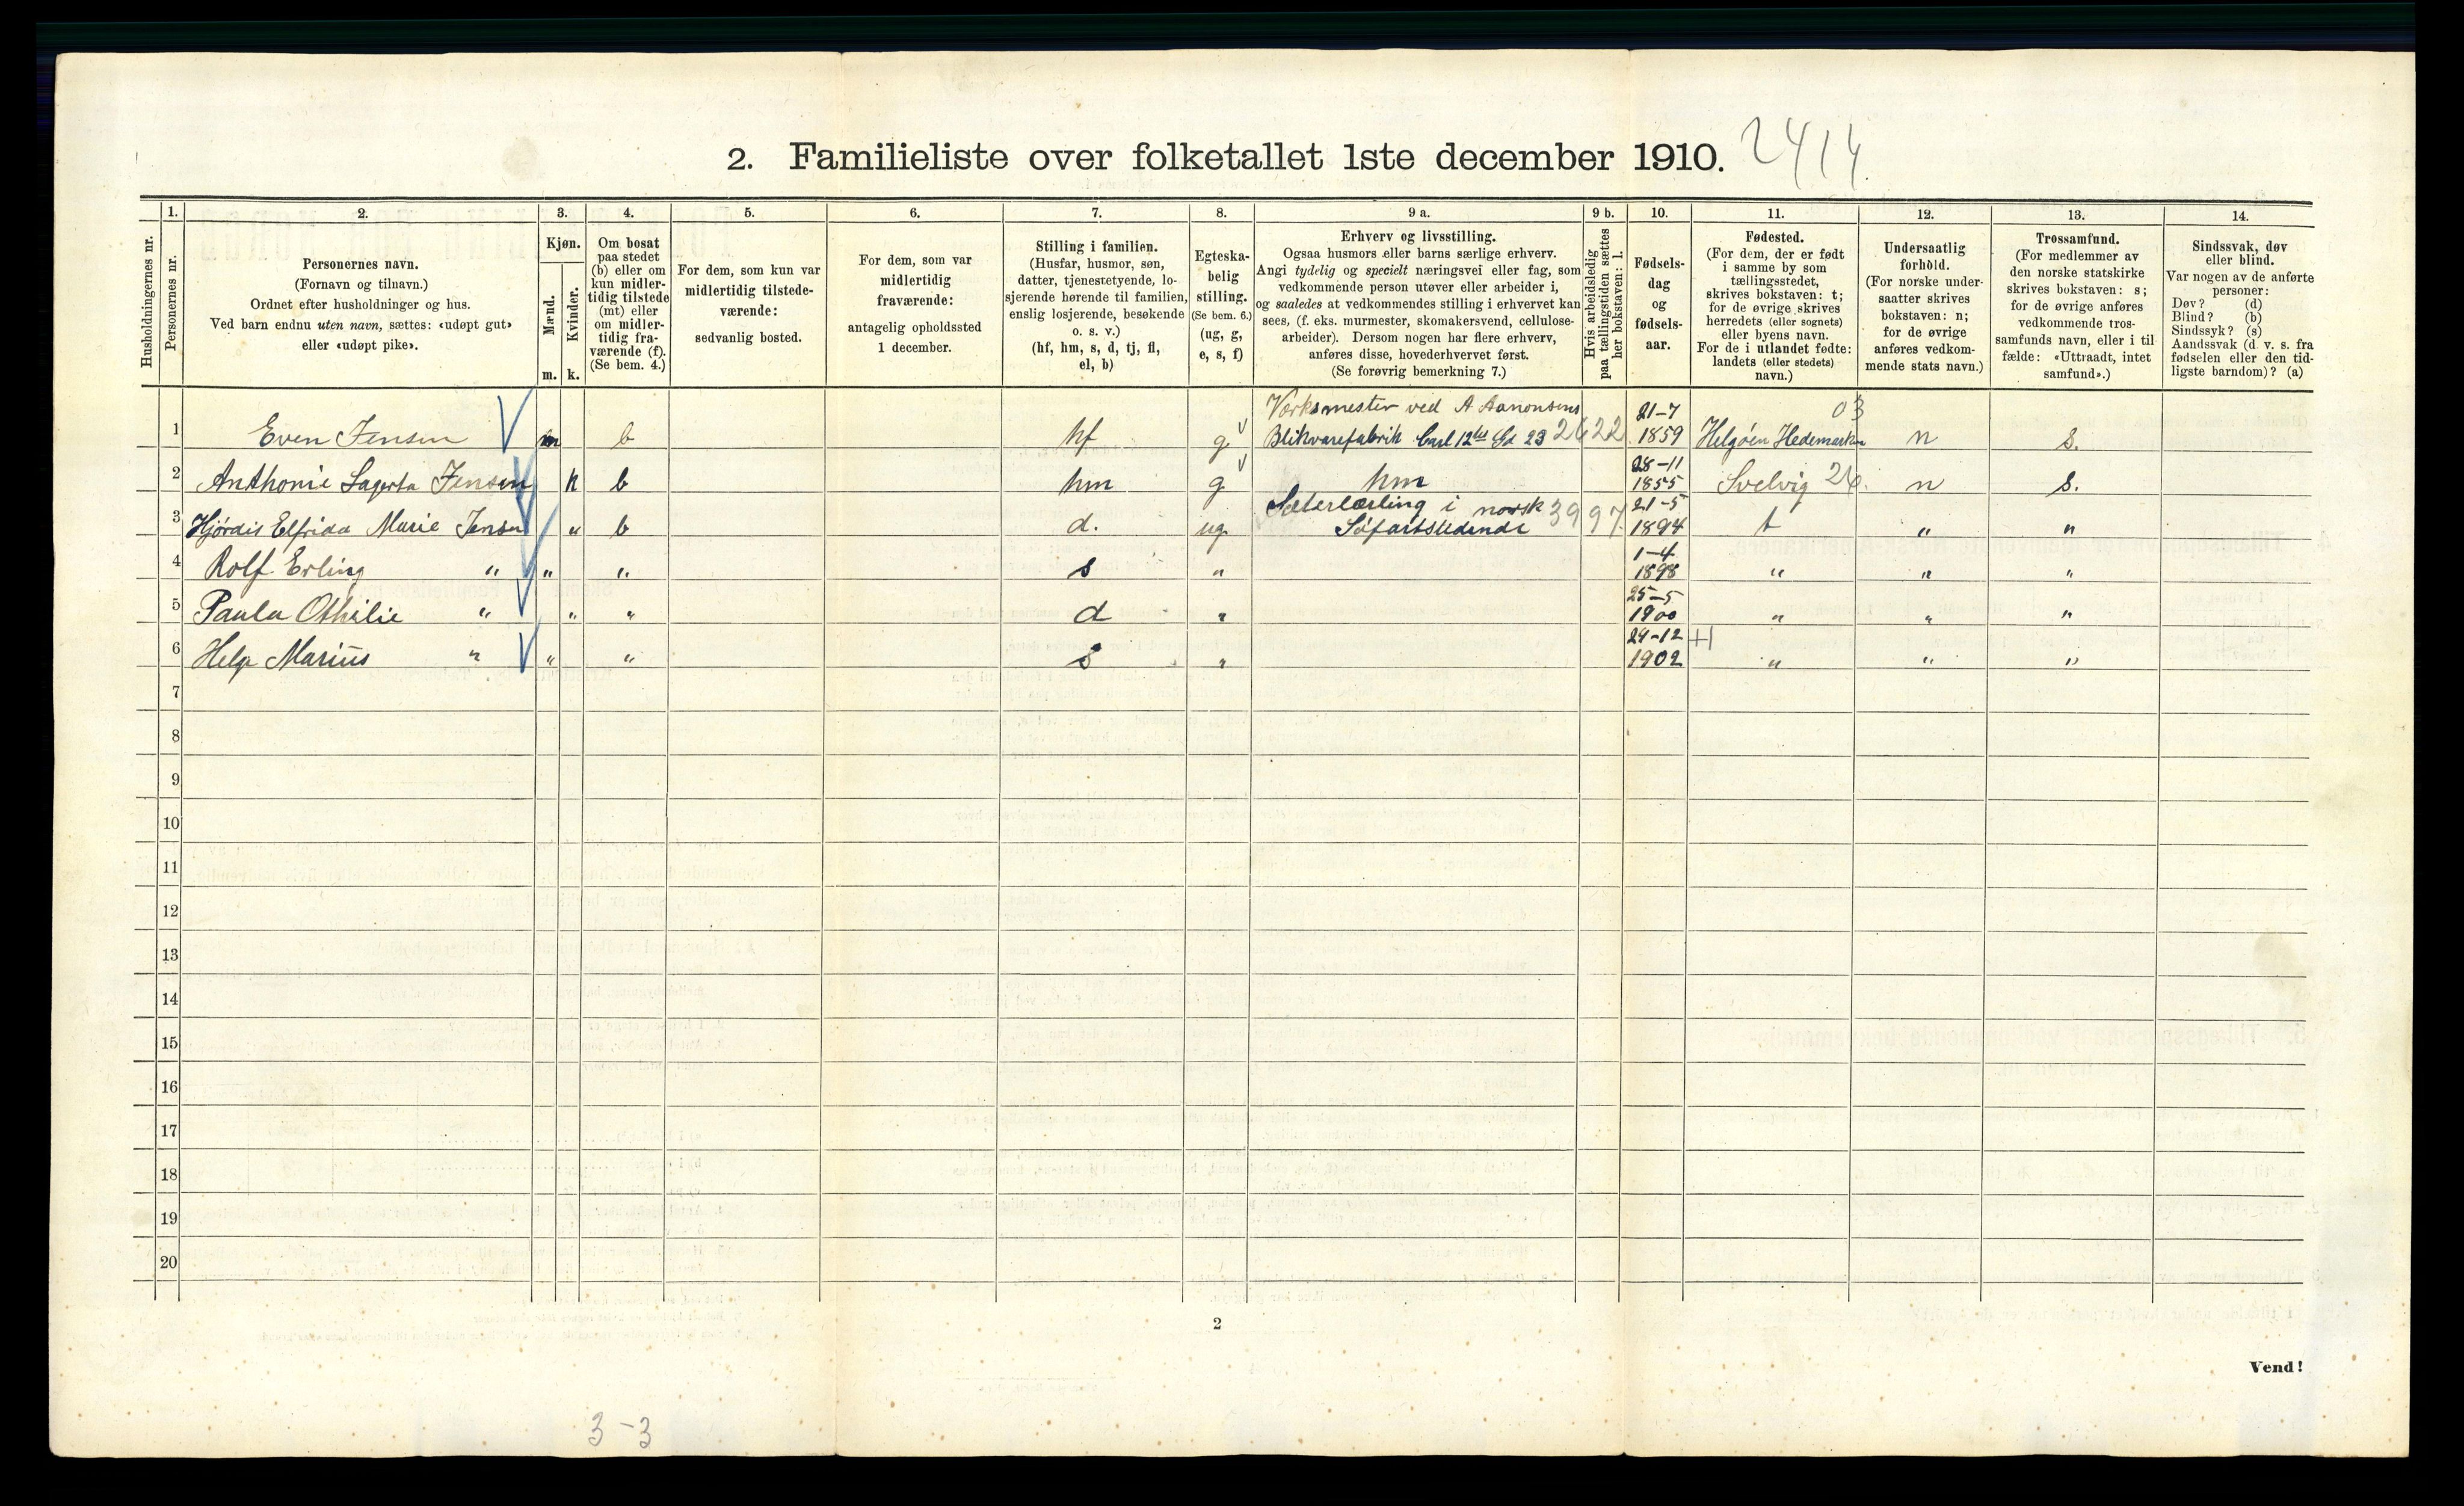 2. Familieliste over folketallet 1ste december 1910. 2414
Husholdningernes nr.
1.
Personernes nr.
2.
Personernes navn.
(Fornavn og tilnavn.)
Ordnet efter husholdninger og hus.
Ved barn endnu uten navn, sættes: «udøpt gut»
eller «udøpt pike».
3.
Kjøn.
Mænd.
Kvinder.
m. k.
4.
Om bosat
paa stedet
(b) eller om
kun midler-
tidig tilstede
(mt) eller
om midler-
tidig fra-
værende (f).
(Se bem. 4.)
5.
For dem, som kun var
midlertidig tilstede-
værende:
sedvanlig bosted.
6.
For dem, som var
midlertidig
fraværende:
antagelig opholdssted
1 december.
7.
Stilling i familien.
(Husfar, husmor, søn,
datter, tjenestetyende, lo-
sjerende hørende til familien,
enslig losjerende, besøkende
o. s. v.)
(hf, hm, s, d, tj, fl,
el, b)
8.
Egteska-
belig
stilling.
(Se bem. 6.)
(ug, g,
e, s, f)
9 a.
Erhverv og livsstilling.
Ogsaa husmors eller barns særlige erhverv.
Angi tydelig og specielt næringsvei eller fag, som
vedkommende person utøver eller arbeider i,
og saaledes at vedkommendes stilling i erhvervet kan
sees, (f. eks. murmester, skomakersvend, cellulose-
arbeider). Dersom nogen har flere erhverv,
anføres disse, hovederhvervet først.
(Se forøvrig bemerkning 7.)
9 b.
Hvis arbeidsledig
paa tællingstiden sættes
her bokstaven: l.
10.
Fødsels-
dag
og
fødsels-
aar.
11.
Fødested.
(For dem, der er født
i samme by som
tællingsstedet,
skrives bokstaven: t;
for de øvrige skrives
herredets (eller sognets)
eller byens navn.
For de i utlandet fødte:
landets (eller stedets)
navn.)
12.
Undersaatlig
forhold.
(For norske under-
saatter skrives
bokstaven: n;
for de øvrige
anføres vedkom-
mende stats navn.)
13.
Trossamfund.
(For medlemmer av
den norske statskirke
skrives bokstaven: s;
for de øvrige anføres
vedkommende tros-
samfunds navn, eller i til-
fælde: «Uttraadt, intet
samfund».)
14.
Sindssvak, døv
eller blind.
Var nogen av de anførte
personer:
Døv? (d)
Blind? (b)
Sindssyk? (s)
Aandssvak (d. v. s. fra
fødselen eller den tid-
ligste barndom)? (a)
Værksmester ved A Aanonsens 21-7 03
1 Even Jensen m b hf g Blikvarefabrik Carl 12tes Gd 23 2622 1859 Helgøen Hedemarken n s.
28-11
2 Anthonie Lagerta Jensen k b hm g hm 1855 Svelvig 26. n s.
Sæterlærling i norsk 3997 21-5
3 Hjørdis Elfrida Marie Jensen " b d. ug Søfartstidende 1894 t " "
1-4
4 Rolf Erling " " " s " 1898 " " "
25-5
5 Paula Othilie " " " d " 1900 " " "
24-12 +1
6 Helge Marius " " " s " 1902 " " "
7
8
9
10
11
12
13
14
15
16
17
18
19
20
2
Vend!
3-3